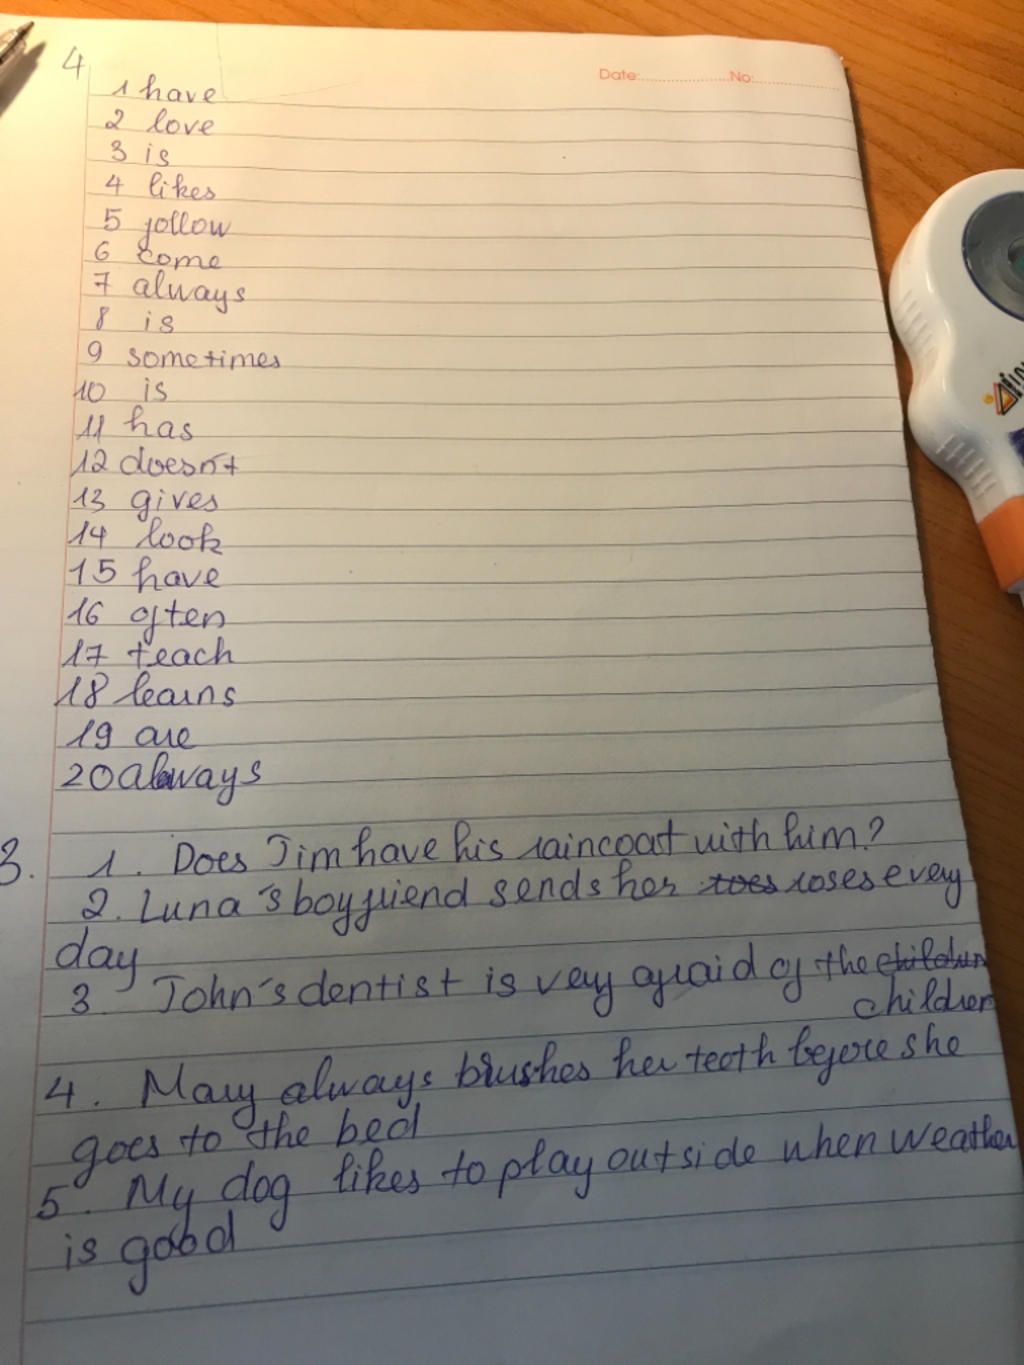 4
Date: No:
1 have
2 love
3 is
4 likes
5 follow
6 come
7 always
8 is
9 sometimes
10 is
11 has
12 doesn't
13 gives
14 look
15 have
16 often
17 teach
18 learns
19 are
20 always
3. 1. Does Jim have his raincoat with him?
2. Luna's boyfriend sends her roses every
day
3. John's dentist is very afraid of the children
children
4. Mary always brushes her teeth before she
goes to the bed
5. My dog likes to play outside when weather
is good